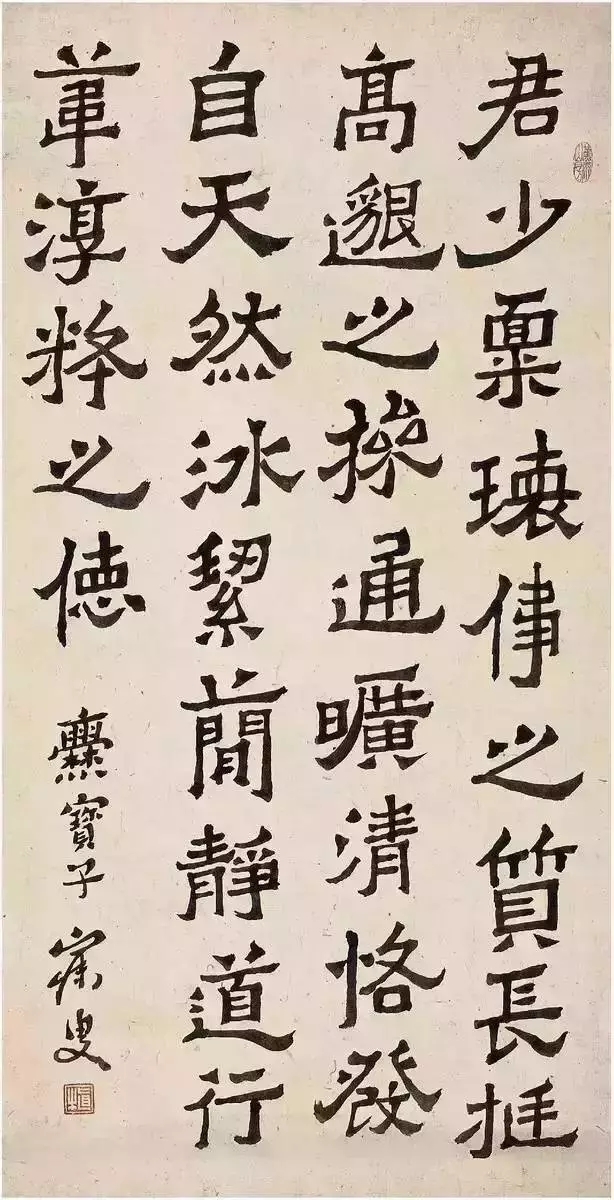 君少稟瓌偉之質長挺
髙邈之操通曠清恪發
自天然冰絜簡靜道行
葦淳粹之德
爨寶子 寐叟